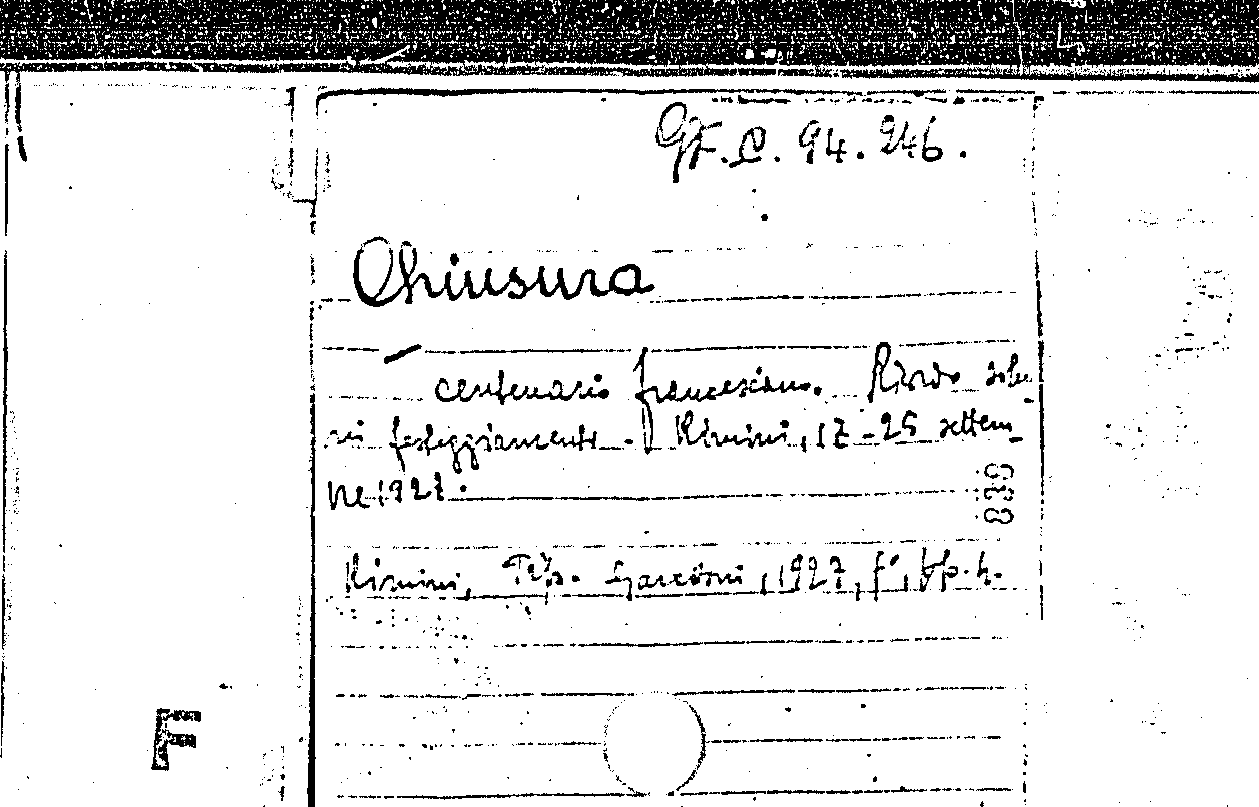 Gf. C. 94. 246.
Chiusura
— centenario francescano. Ricordo sole-
ni festeggiamenti - Rimini, 17-25 settem-
bre 1927.
839
Rimini, Tip. Garattoni, 1927, f°, pp. 4.
F